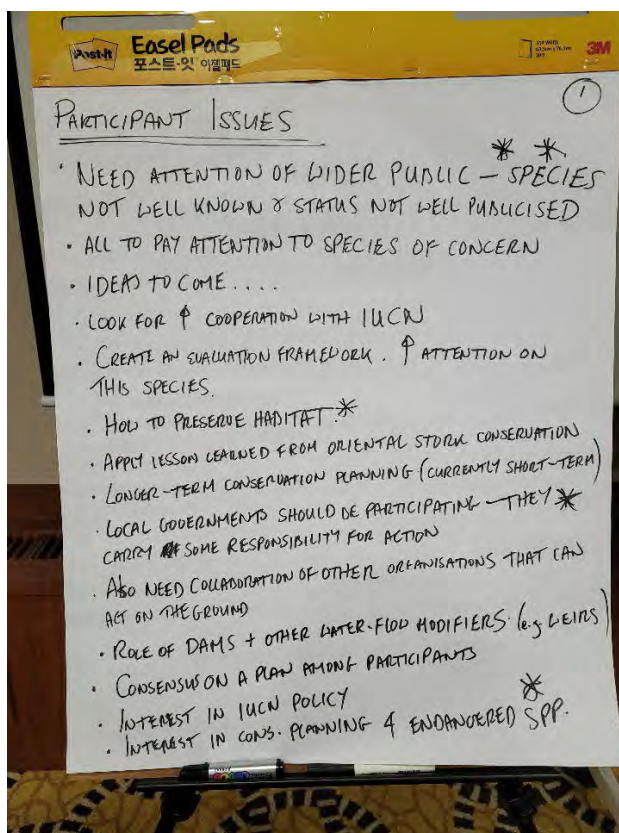 Post-it Easel Pads
포스트-잇 이젤패드
3M
1
PARTICIPANT ISSUES
· NEED ATTENTION OF WIDER PUBLIC – SPECIES * *
NOT WELL KNOWN & STATUS NOT WELL PUBLICISED
· ALL TO PAY ATTENTION TO SPECIES OF CONCERN
· IDEAS TO COME . . . .
· LOOK FOR ↑ COOPERATION WITH IUCN
· CREATE AN EVALUATION FRAMEWORK. ↑ ATTENTION ON
THIS SPECIES.
· HOW TO PRESERVE HABITAT. *
· APPLY LESSON LEARNED FROM ORIENTAL STORK CONSERVATION
· LONGER-TERM CONSERVATION PLANNING (CURRENTLY SHORT-TERM)
· LOCAL GOVERNMENTS SHOULD BE PARTICIPATING – THEY *
CARRY SOME RESPONSIBILITY FOR ACTION
· ALSO NEED COLLABORATION OF OTHER ORGANISATIONS THAT CAN
ACT ON THE GROUND
· ROLE OF DAMS + OTHER WATER-FLOW MODIFIERS. (e.g WEIRS)
· CONSENSUS ON A PLAN AMONG PARTICIPANTS
· INTEREST IN IUCN POLICY
· INTEREST IN CONS. PLANNING & ENDANGERED SPP. *